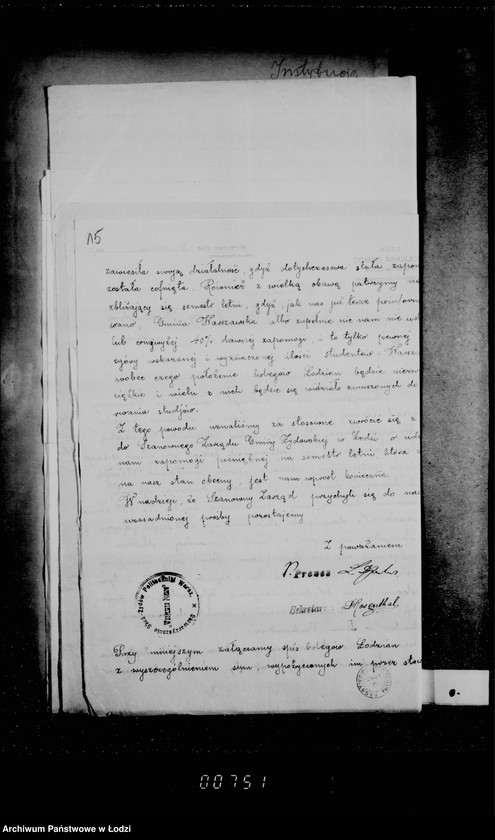 Instytucja
15
zawiesiła swoją działalność, gdyż dotychczasowa stała zapom
została cofnięta. Ponieważ z wielką obawą patrzymy na
zbliżający się semestr letni, gdyż, jak nas już teraz poinform
wano, Gmina Warszawska albo zupełnie nic nam nie
lub conajwyżej 40% dawnej zapomogi i to tylko pewnej
zgóry wskazanej i wyznaczonej ilości studentów Warsz
wobec czego położenie kolegów Łodzian będzie
ciężkie i wielu z nich będzie się widziało zmuszonych do
wania studjów.
Z tego powodu uznaliśmy za stosowne zwrócić się z
do Szanownego Zarządu Gminy Żydowskiej w Łodzi o
nam zapomogi pieniężnej na semestr letni która
na nasz stan obecny, jest nam wprost konieczna.
W nadziei, że Szanowny Zarząd przychyli się do nas
uzasadnionej prośby pozostajemy
Z poważaniem
Prezes
Sekretarz Rosenthal
Przy niniejszym załączamy spis kolegów Łodzian
z wyszczególnieniem sum, wypożyczonych im przez stow
00751
Archiwum Państwowe w Łodzi